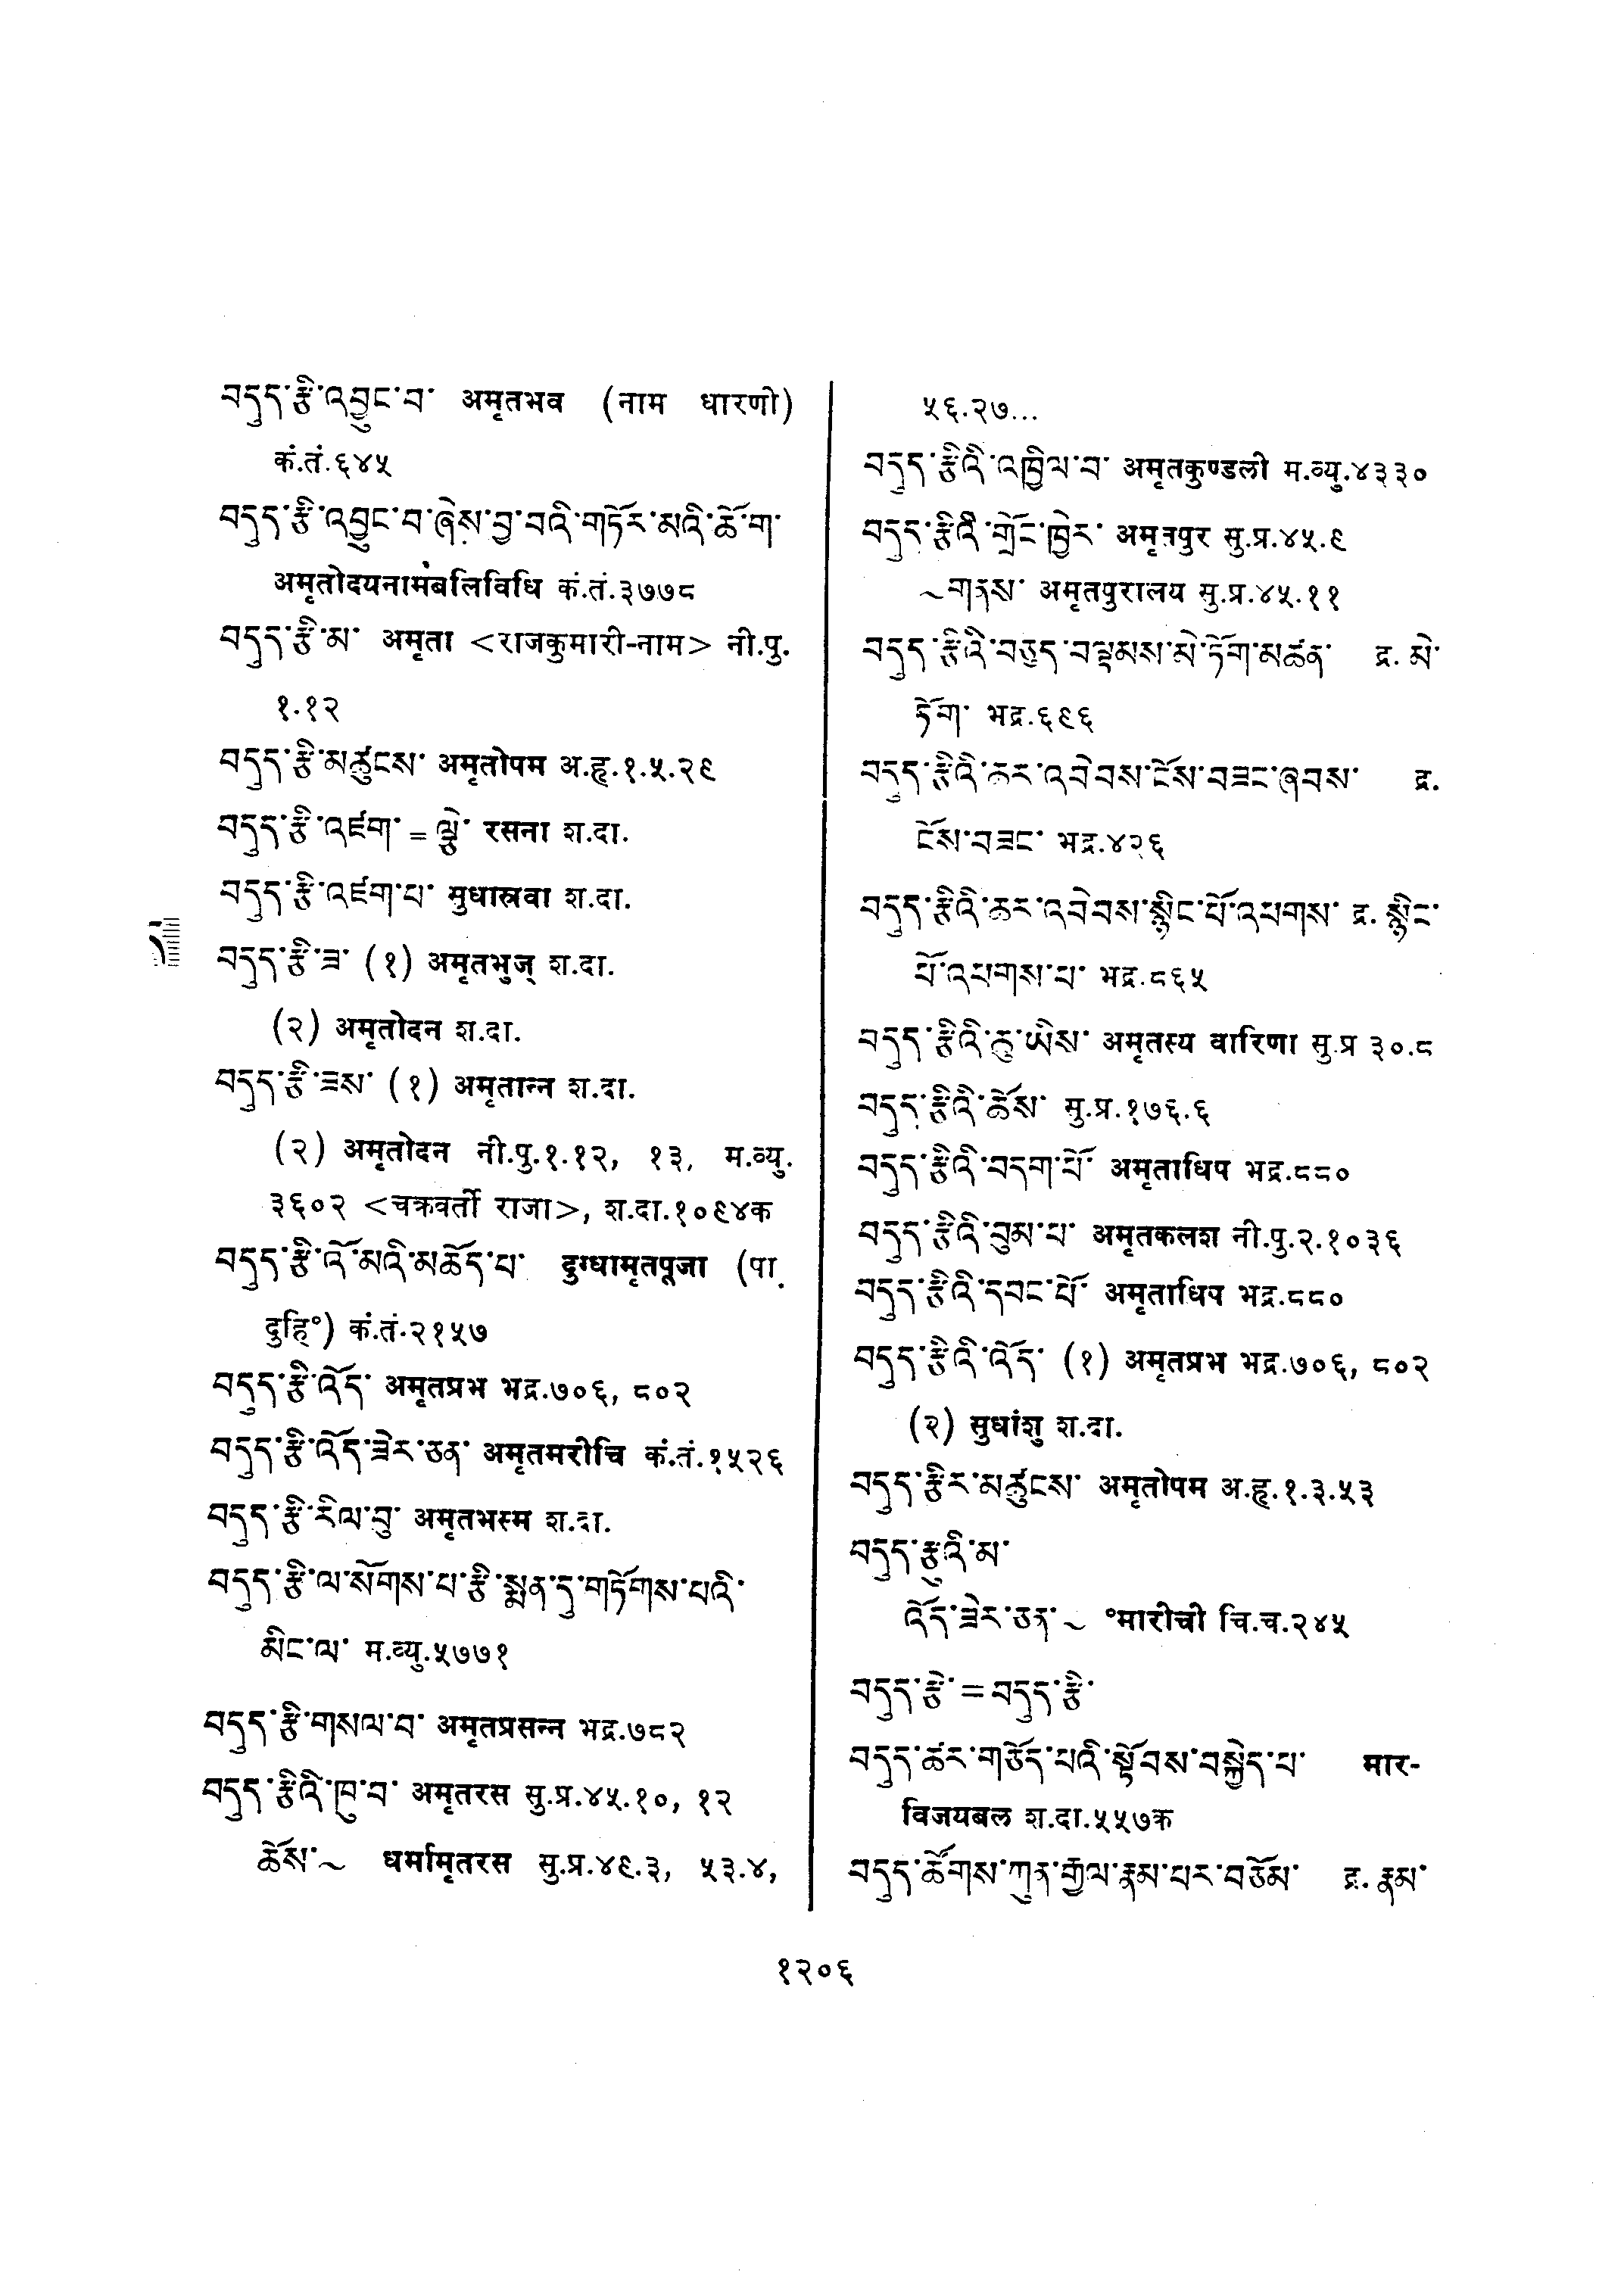 བདུད་རྩི་འབྱུང་བ་ अमृतभव (नाम धारणी)
कं.तं.६४५
བདུད་རྩི་འབྱུང་བ་ཞེས་བྱ་བའི་གཏོར་མའི་ཆོ་ག་
अमृतोदयनामबलिविधि कं.तं.३७७८
བདུད་རྩི་མ་ अमृता <राजकुमारी-नाम> नी.पु.
१.१२
བདུད་རྩི་མཚུངས་ अमृतोपम अ.हृ.१.५.२९
བདུད་རྩི་འཛག་ = ལྕེ་ रसना श.दा.
བདུད་རྩི་འཛག་པ་ सुधास्रवा श.दा.
བདུད་རྩི་ཟ་ (१) अमृतभुज् श.दा.
(२) अमृतोदन श.दा.
བདུད་རྩི་ཟས་ (१) अमृतान्न श.दा.
(२) अमृतोदन नी.पु.१.१२, १३, म.व्यु.
३६०२ <चक्रवर्ती राजा>, श.दा.१०९४क
བདུད་རྩི་འོ་མའི་མཆོད་པ་ दुग्धामृतपूजा (पा.
दुहि°) कं.तं.२१५७
བདུད་རྩི་འོད་ अमृतप्रभ भद्र.७०६, ८०२
བདུད་རྩི་འོད་ཟེར་ཅན་ अमृतमरीचि कं.तं.१५२६
བདུད་རྩི་རིལ་བུ་ अमृतभस्म श.दा.
བདུད་རྩི་ལ་སོགས་པ་རྩི་སྨན་དུ་གཏོགས་པའི་
མིང་ལ་ म.व्यु.५७७१
བདུད་རྩི་གསལ་བ་ अमृतप्रसन्न भद्र.७८२
བདུད་རྩིའི་ཁུ་བ་ अमृतरस सु.प्र.४५.१०, १२
ཆོས་~ धर्मामृतरस सु.प्र.४९.३, ५३.४,
५६.२७...
བདུད་རྩིའི་འཁྱིལ་བ་ अमृतकुण्डली म.व्यु.४३३०
བདུད་རྩིའི་གྲོང་ཁྱེར་ अमृतपुर सु.प्र.४५.९
~གནས་ अमृतपुरालय सु.प्र.४५.११
བདུད་རྩིའི་བཅུད་བལྟམས་མེ་ཏོག་མཚན་ द्र. མེ་
ཏོག་ भद्र.६९६
བདུད་རྩིའི་ཆར་འབེབས་ངོས་བཟང་ཞབས་ द्र.
ངོས་བཟང་ भद्र.४२६
བདུད་རྩིའི་ཆར་འབེབས་སྙིང་པོ་འཕགས་ द्र. སྙིང་
པོ་འཕགས་པ་ भद्र.८६५
བདུད་རྩིའི་ཆུ་ཡིས་ अमृतस्य वारिणा सु.प्र ३०.८
བདུད་རྩིའི་ཆོས་ सु.प्र.१७६.६
བདུད་རྩིའི་བདག་པོ་ अमृताधिप भद्र.८८०
བདུད་རྩིའི་བུམ་པ་ अमृतकलश नी.पु.२.१०३६
བདུད་རྩིའི་དབང་པོ་ अमृताधिप भद्र.८८०
བདུད་རྩིའི་འོད་ (१) अमृतप्रभ भद्र.७०६, ८०२
(२) सुधांशु श.दा.
བདུད་རྩིར་མཚུངས་ अमृतोपम अ.हृ.१.३.५३
བདུད་རྩུའི་མ་
འོད་ཟེར་ཅན་~ °मारीची चि.च.२४५
བདུད་རྩེ་ = བདུད་རྩི་
བདུད་ཚར་གཅོད་པའི་སྟོབས་བསྐྱེད་པ་ मार-
विजयबल श.दा.५५७क
བདུད་ཚོགས་ཀུན་རྒྱལ་རྣམ་པར་བཅོམ་ द्र. རྣམ་
१२०६